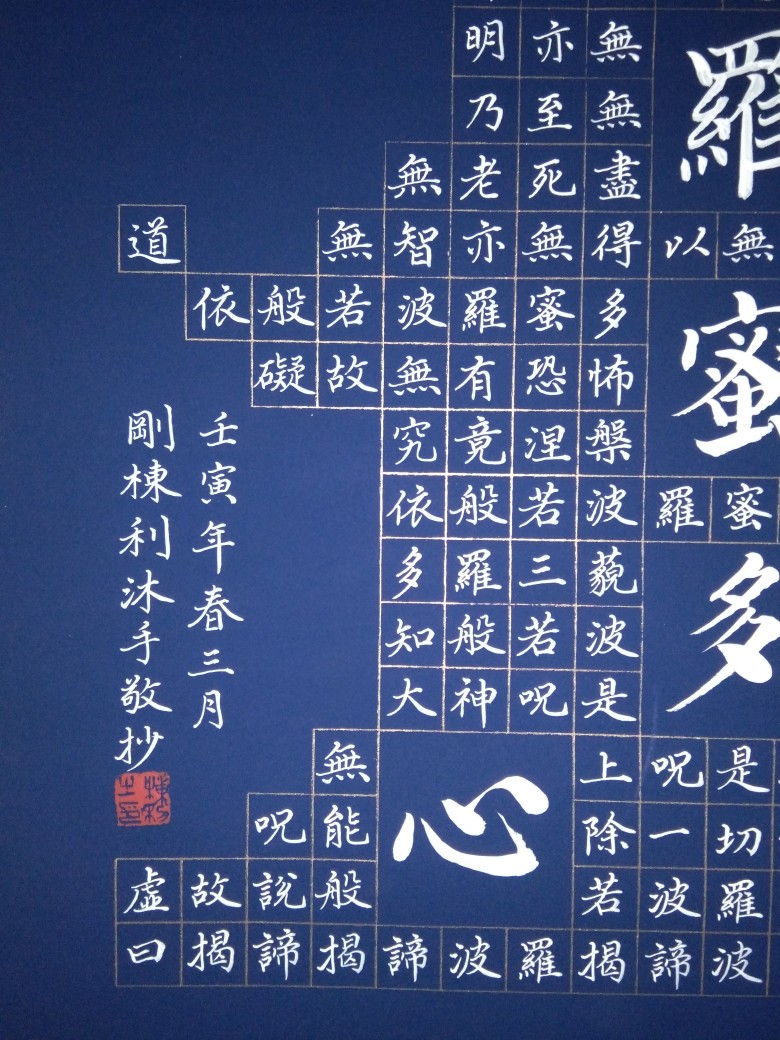 明亦無
乃至無
無老死盡
道無智亦無得以無
依般若波羅蜜多
礙故無有恐怖
究竟涅槃
依般若波羅蜜
多羅三藐
知般若波
大神呪是
無上呪是
呪能除一切
虛故說般若波羅
曰揭諦揭諦波羅揭諦波
羅蜜多心
壬寅年春三月
剛棟利沐手敬抄
棟利之印